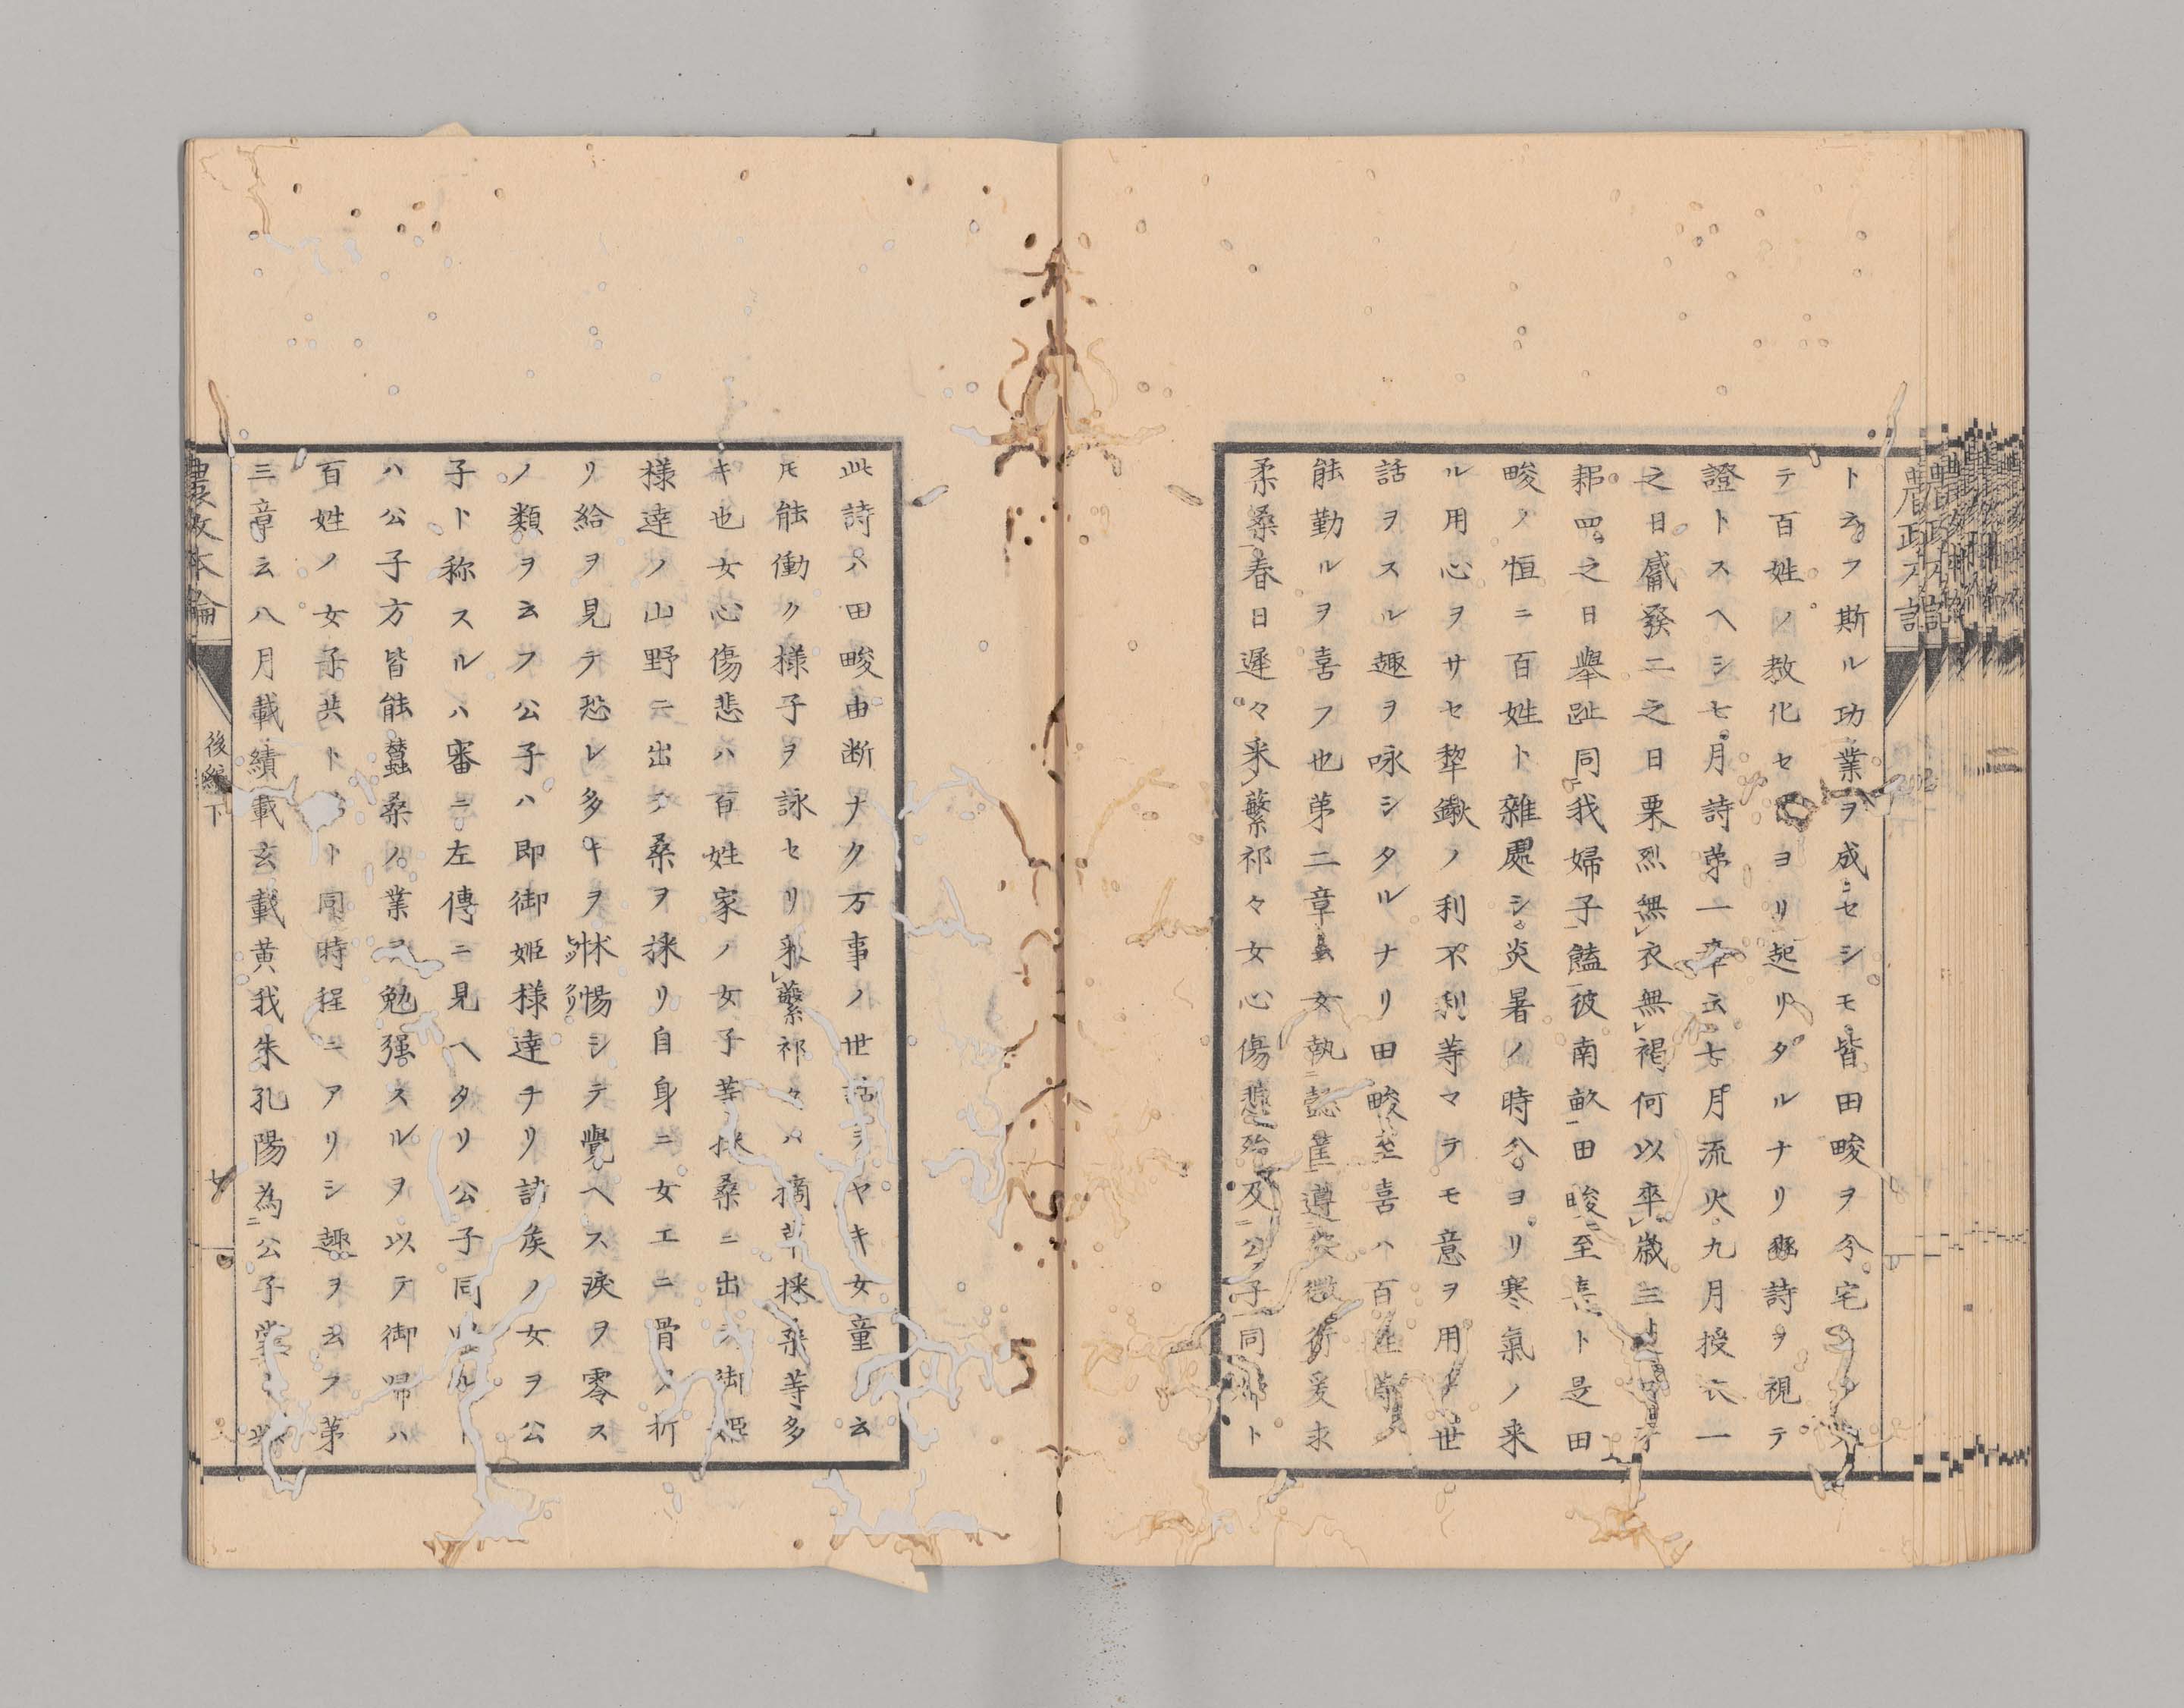 ト云フ斯ル功業ヲ成ニセシモ皆田畯ヲ令宅
テ百姓ノ教化セ ヨリ起リタルナリ豳詩ヲ視テ
證トスヘシ七月詩第一章云七月流火九月授衣一
之日觱發二之日栗烈無衣無褐何以卒歳三之日于
耜四之日擧趾同我婦子饁彼南畝田畯至喜ト是田
畯ノ恒ニ百姓ト雜處シ炎暑ノ時分ヨリ寒氣ノ来
ル用心ヲサセ犂鍬ノ利不利等マテモ意ヲ用ノ世
話ヲスル趣ヲ咏シタルナリ田畯至喜ハ百姓ノ
能勤ルヲ喜フ也第二章云女執懿筐遵彼微行爰求
柔桑春日遲々采蘩祁々女心傷悲殆及公子同歸ト
此詩ハ田畯由断ナク万事ノ世話ヲヤキ女童 云
モ能働ク様子ヲ詠セリ采蘩祁々ハ摘草採桑等多
キ也女心傷悲ハ百姓家ノ女子等採桑ニ出テ御姫
様達ノ山野ニ出テ桑ヲ採リ自身ニ女工ニ骨ヲ折
リ給ヲ見テ恐レ多キヲ怵惕シテ覺ヘス涙ヲ零ス
ノ類ヲ云フ公子ハ即御姫様達チリ諸矦ノ女ヲ公
子ト称スルハ審ニ左傳ニ見ヘタリ公子同歸ルト
ハ公子方皆能蠶桑ノ業ヲ勉强スルヲ以テ御帰ハ
百姓ノ女子共ト ト同時程ニアリシ趣ヲ云フ第
三章云八月載績載玄載黄我朱孔陽為公子裳ト此
農政本論
後編下